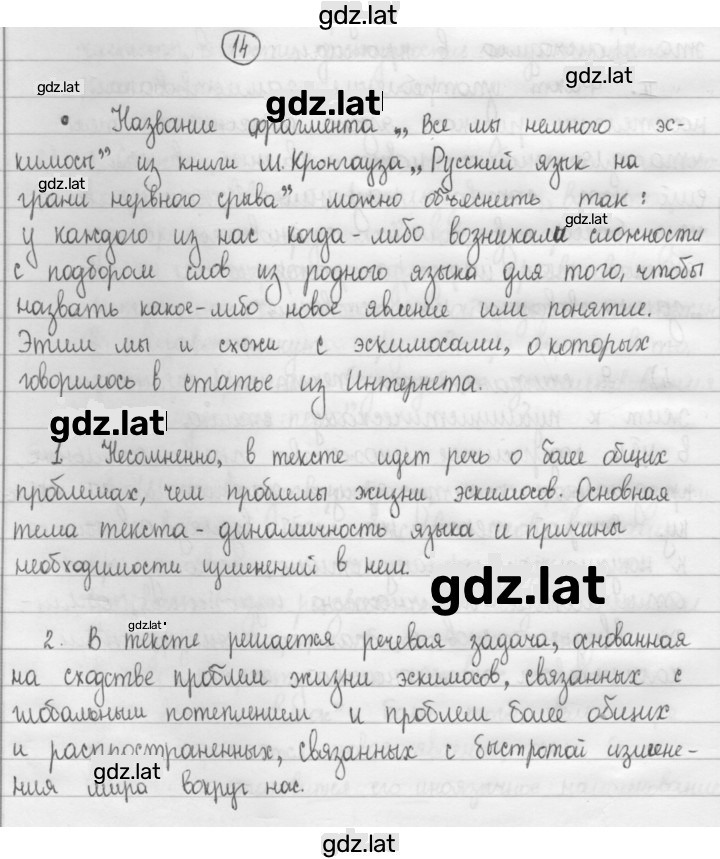 gdz.lat
14
gdz.lat
gdz.lat
gdz.lat
• Название фрагмента „Все мы немного эс-
кимосы” из книги М. Кронгауза „Русский язык на
gdz.lat
грани нервного срыва” можно объяснить так:
gdz.lat
у каждого из нас когда-либо возникали сложности
с подбором слов из родного языка для того, чтобы
назвать какое-либо новое явление или понятие.
Этим мы и схожи с эскимосами, о которых
говорилось в статье из Интернета.
gdz.lat
1. Несомненно, в тексте идет речь о более общих
проблемах, чем проблемы жизни эскимосов. Основная
тема текста - динамичность языка и причины
необходимости изменений в нем.
gdz.lat
gdz.lat
2. В тексте решается речевая задача, основанная
на сходстве проблем жизни эскимосов, связанных с
глобальным потеплением и проблем более общих
и распространенных, связанных с быстротой измене-
gdz.lat
ния мира вокруг нас.
gdz.lat